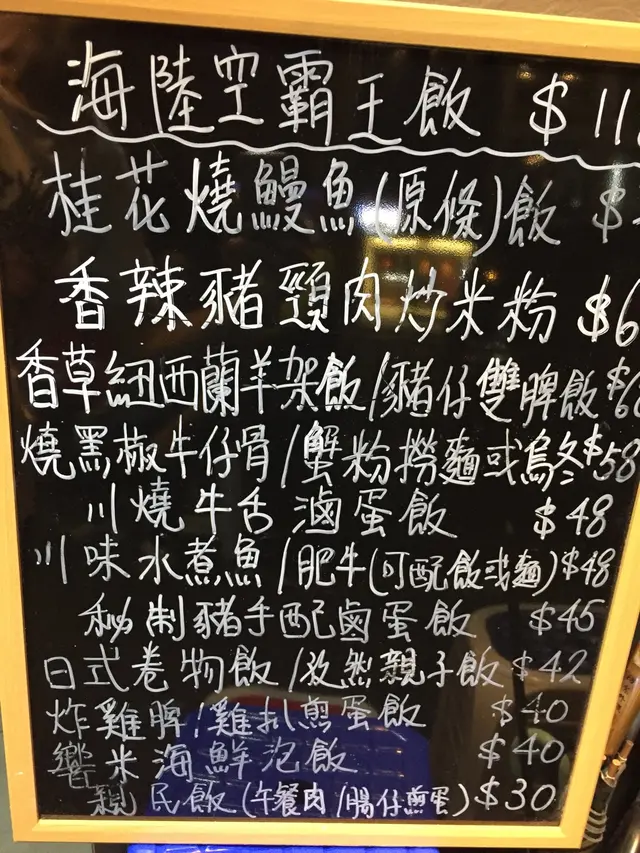 海陸空霸王飯 $11
桂花燒鰻魚(原條)飯 $
香辣豬頸肉炒米粉 $6
香草紐西蘭羊架飯/豬仔雙脾飯 $6
燒黑椒牛仔骨/蟹粉撈麵或烏冬 $58
川燒牛舌滷蛋飯 $48
川味水煮魚/肥牛(可配飯或麵) $48
秘制豬手配鹵蛋飯 $45
日式卷物飯/孜然親子飯 $42
炸雞脾/雞扒煎蛋飯 $40
響米海鮮泡飯 $40
親民飯(午餐肉/腸仔煎蛋) $30